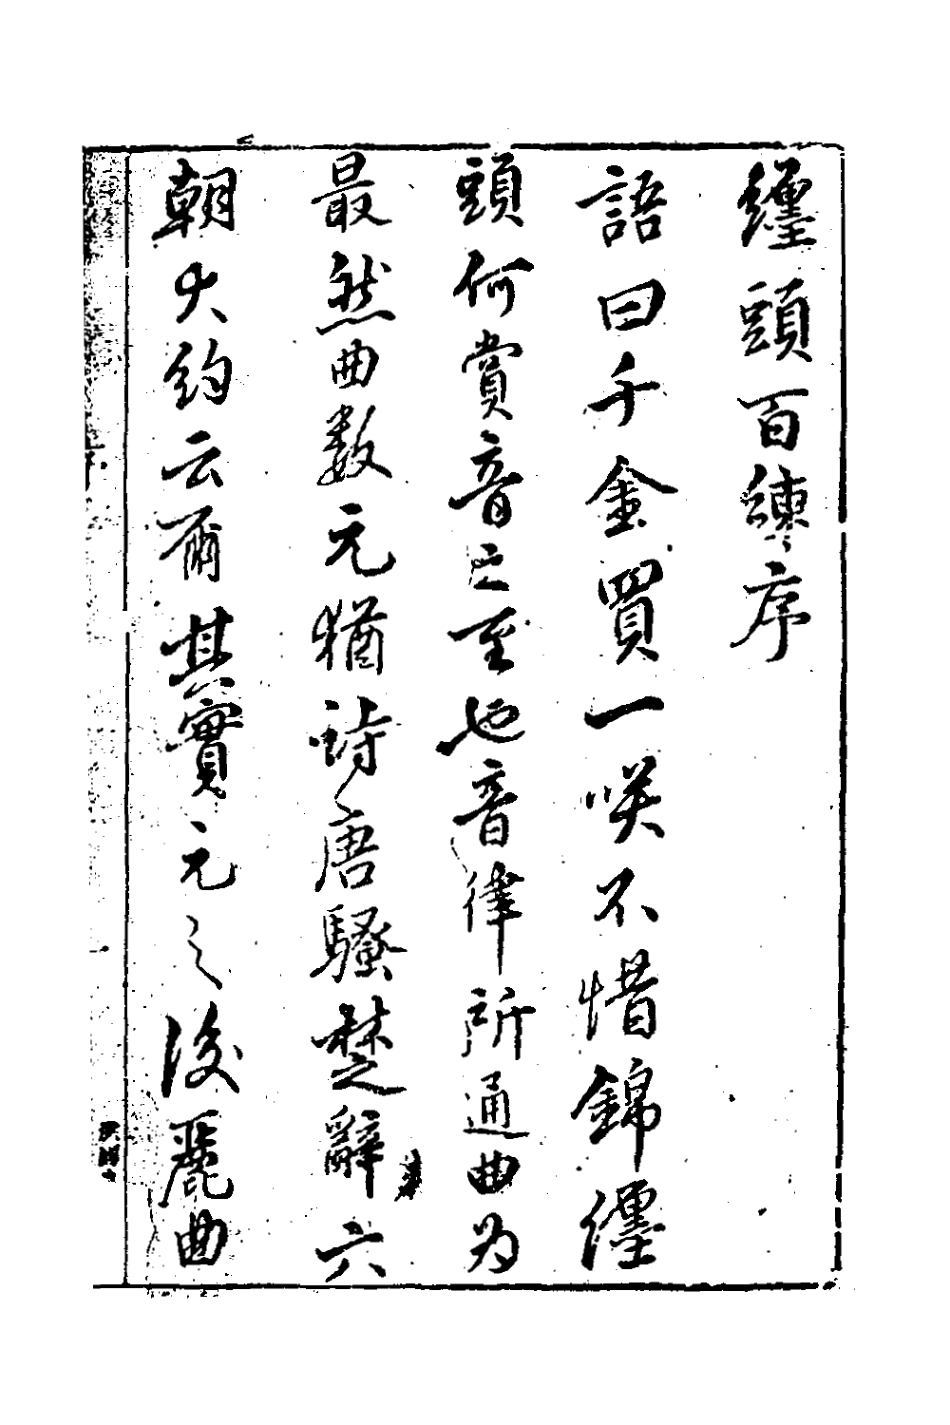 纏頭百練序
語曰千金買一咲不惜錦纏
頭何賞音之至也音律所通曲为
最然曲数元猶詩唐騷楚辭六
朝大約云爾其實元之後麗曲